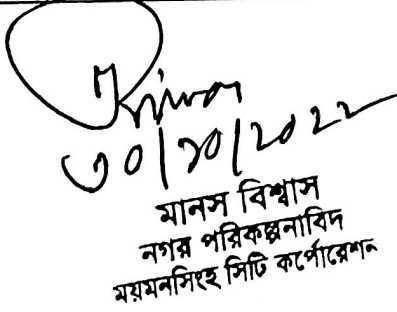 ৩০/১০/২০২২
মানস বিশ্বাস
নগর পরিকল্পনাবিদ
ময়মনসিংহ সিটি কর্পোরেশন